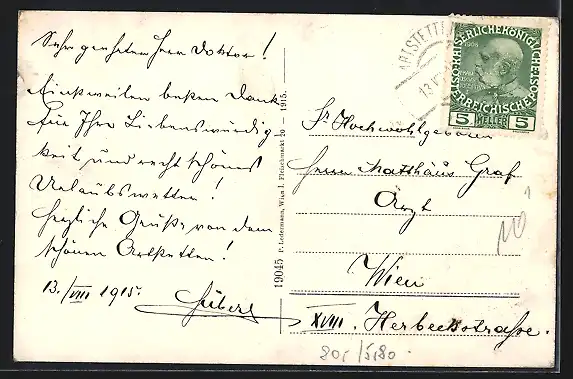 Sehr geehrter Herr Doktor!
Einstweilen besten Dank
für Ihre Liebenswürdig-
keit und recht schönes
Urlaubswetter!
Herzliche Grüße von dem
schönen Artstetten!
13./VIII 1915.
19045 P. Ledermann, Wien I. Fleischmarkt 20 — 1915.
ARTSTETTEN
KAISERLICHE KÖNIGLICHE
ÖSTERREICHISCHE
1908
5 HELLER 5
Sr Hochwohlgeboren
Herrn Matthäus Graf
Arzt
Wien
XVIII. Herbeckstraße.